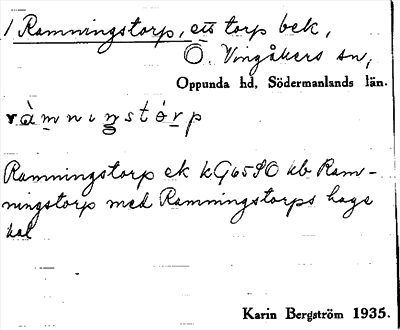 1 Ramningstorp, ett torp bek,
Ö. Vingåkers sn,
Oppunda hd, Södermanlands län.
ràmnıŋstórp
Ramningstorp ek kG6590 kb Ram-
ningstorp med Ramningstorps hage
Karin Bergström 1935.